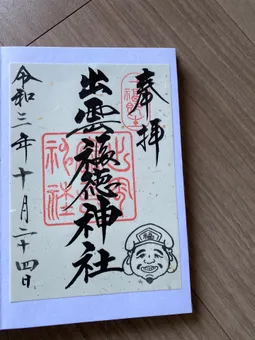 奉拝
出雲福徳神社
令和三年十月二十四日